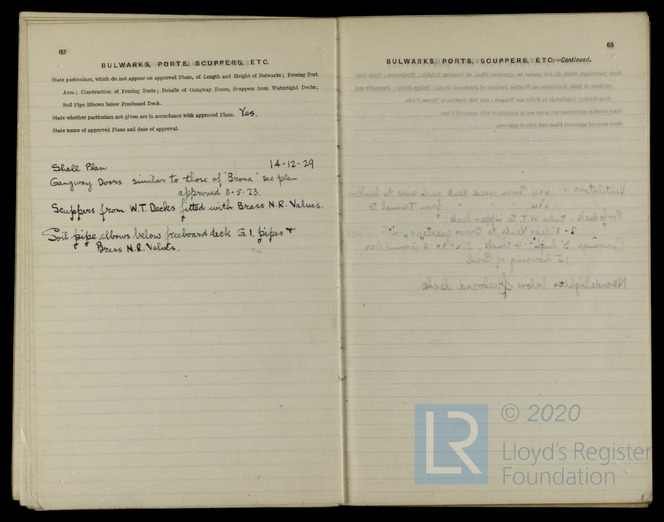 62
BULWARKS, PORTS, SCUPPERS, ETC.
State particulars, which do not appear on approved Plans, of Length and Height of Bulwarks; Freeing Port
Area; Construction of Freeing Ports; Details of Gangway Doors, Scuppers from Watertight Decks;
Soil Pipe Elbows below Freeboard Deck.
State whether particulars not given are in accordance with approved Plans. Yes.
State name of approved Plans and date of approval.
Shell Plan 14-12-29
Gangway Doors similar to those of "Brora" see plan
approved 3-8-23.
Scuppers from W.T. Decks fitted with Brass N.R. Valves.
Soil pipe elbows below freeboard deck G.I. pipes &
Brass N.R. Valves.
63
BULWARKS, PORTS, SCUPPERS, ETC.—Continued.
LR © 2020
Lloyd's Register
Foundation